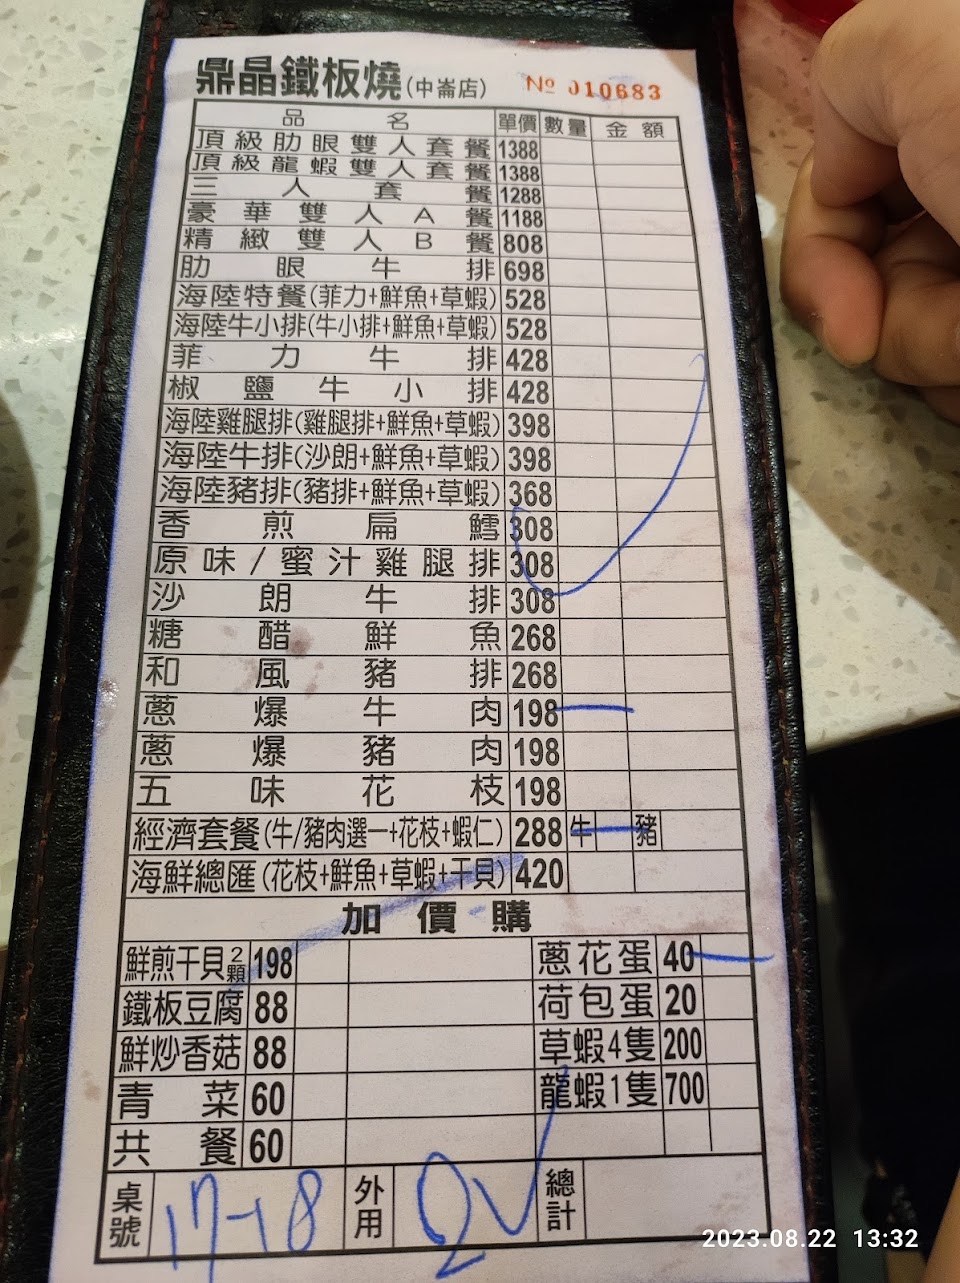 鼎晶鐵板燒(中崙店) № 010683
品名 單價 數量 金額
頂級肋眼雙人套餐 1388
頂級龍蝦雙人套餐 1388
三人套餐 1288
豪華雙人A餐 1188
精緻雙人B餐 808
肋眼牛排 698
海陸特餐(菲力+鮮魚+草蝦) 528
海陸牛小排(牛小排+鮮魚+草蝦) 528
菲力牛排 428
椒鹽牛小排 428
海陸雞腿排(雞腿排+鮮魚+草蝦) 398
海陸牛排(沙朗+鮮魚+草蝦) 398
海陸豬排(豬排+鮮魚+草蝦) 368
香煎扁鱈 308
原味/蜜汁雞腿排 308
沙朗牛排 308
糖醋鮮魚 268
和風豬排 268
蔥爆牛肉 198 一
蔥爆豬肉 198
五味花枝 198
經濟套餐(牛/豬肉選一+花枝+蝦仁) 288 牛 一 豬
海鮮總匯(花枝+鮮魚+草蝦+干貝) 420
加價購
鮮煎干貝2顆 198 蔥花蛋 40 一
鐵板豆腐 88 荷包蛋 20
鮮炒香菇 88 草蝦4隻 200
青菜 60 龍蝦1隻 700
共餐 60
桌號 17-18 外用 2 總計
2023.08.22 13:32